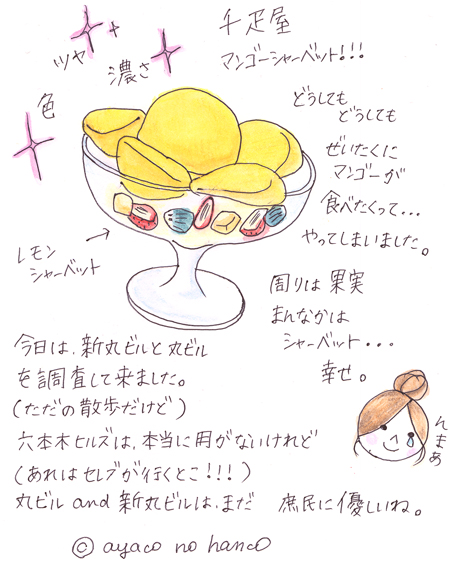 千疋屋
マンゴーシャーベット!!!
ツヤ
濃さ
色
どうしても
どうしても
ぜいたくに
マンゴーが
食べたくって...
やってしまいました。
レモン
シャーベット
周りは果実
まんなかは
シャーベット...
幸せ。
んまぁ
今日は、新丸ビルと丸ビル
を調査して来ました。
(ただの散歩だけど)
六本木ヒルズは、本当に用がないけれど
(あれはセレブが行くとこ!!!)
丸ビル and 新丸ビルは、まだ 庶民に優しいね。
© ayaco no hanco